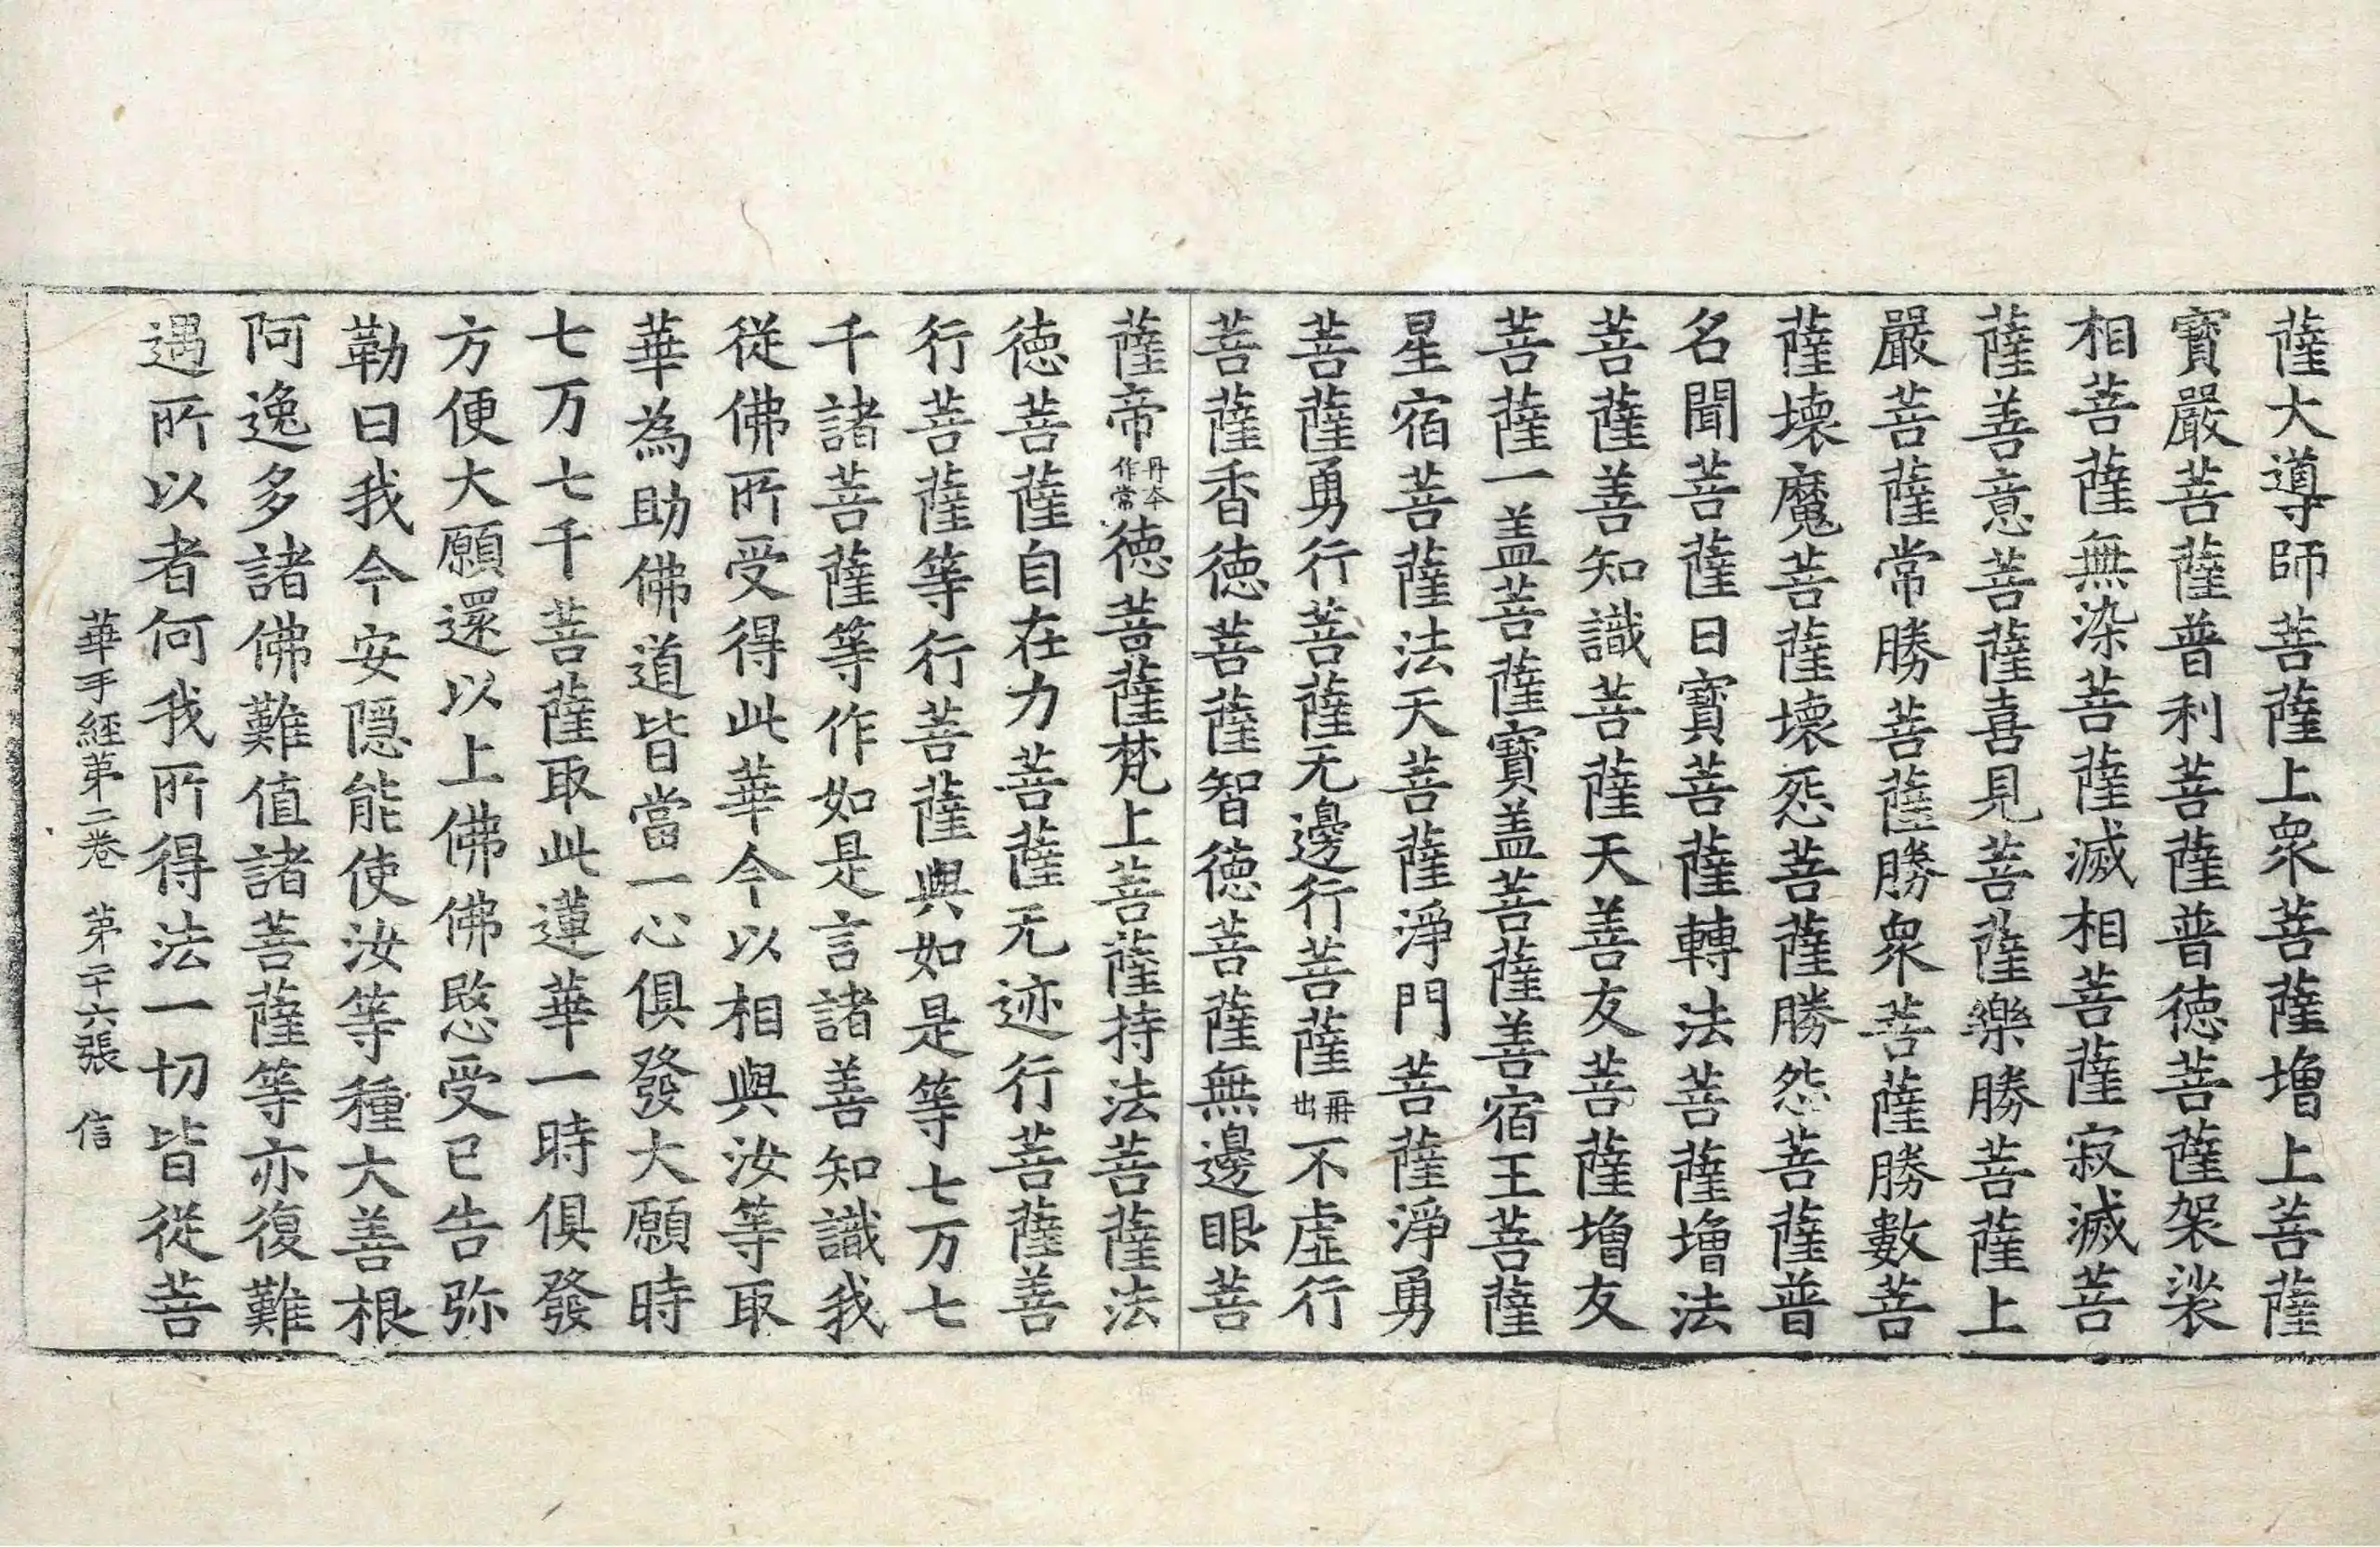 薩大導師菩薩上衆菩薩增上菩薩
寶嚴菩薩普利菩薩普徳菩薩袈裟
相菩薩無染菩薩滅相菩薩寂滅菩
薩善意菩薩喜見菩薩樂勝菩薩上
嚴菩薩常勝菩薩勝衆菩薩勝數菩
薩壞魔菩薩壞怨菩薩勝怨菩薩普
名聞菩薩日寶菩薩轉法菩薩增法
菩薩善知識菩薩天善友菩薩增友
菩薩一盖菩薩寶盖菩薩善宿王菩薩
星宿菩薩法天菩薩淨門菩薩淨勇
菩薩勇行菩薩无邊行菩薩丹出不虛行
菩薩香徳菩薩智徳菩薩無邊眼菩
薩帝丹本作常徳菩薩梵上菩薩持法菩薩法
徳菩薩自在力菩薩无迹行菩薩善
行菩薩等行菩薩與如是等七万七
千諸菩薩等作如是言諸善知識我
從佛所受得此華今以相與汝等取
華為助佛道皆當一心俱發大願時
七万七千菩薩取此蓮華一時俱發
方便大願還以上佛佛愍受已告弥
勒曰我今安隱能使汝等種大善根
阿逸多諸佛難值諸菩薩等亦復難
遇所以者何我所得法一切皆從菩
華手經第二卷 第二十六張 信